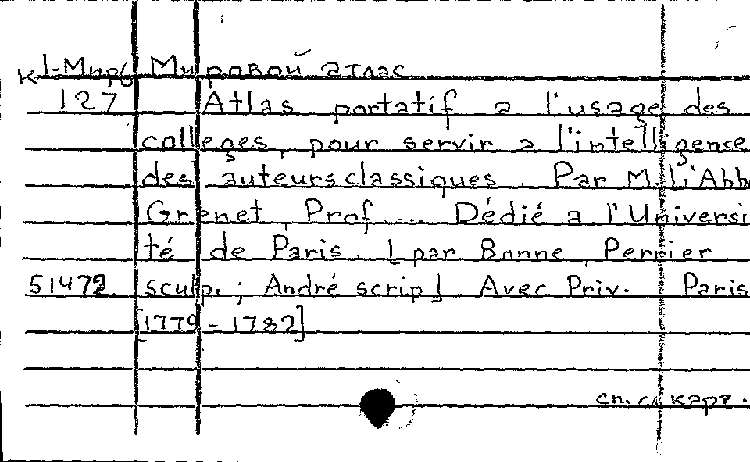 К 1-Мир6 Мировой атлас
127 Atlas portatif a l'usage des
colleges, pour servir a l'intelligence
des auteurs classiques. Par M. L'Abb
Grenet, Prof.... Dédié a l'Universi
té de Paris. [par Bonne, Perrier
51472 sculp.; André scrip] Avec Priv. Paris
[1779-1782]
сп. с. карт.